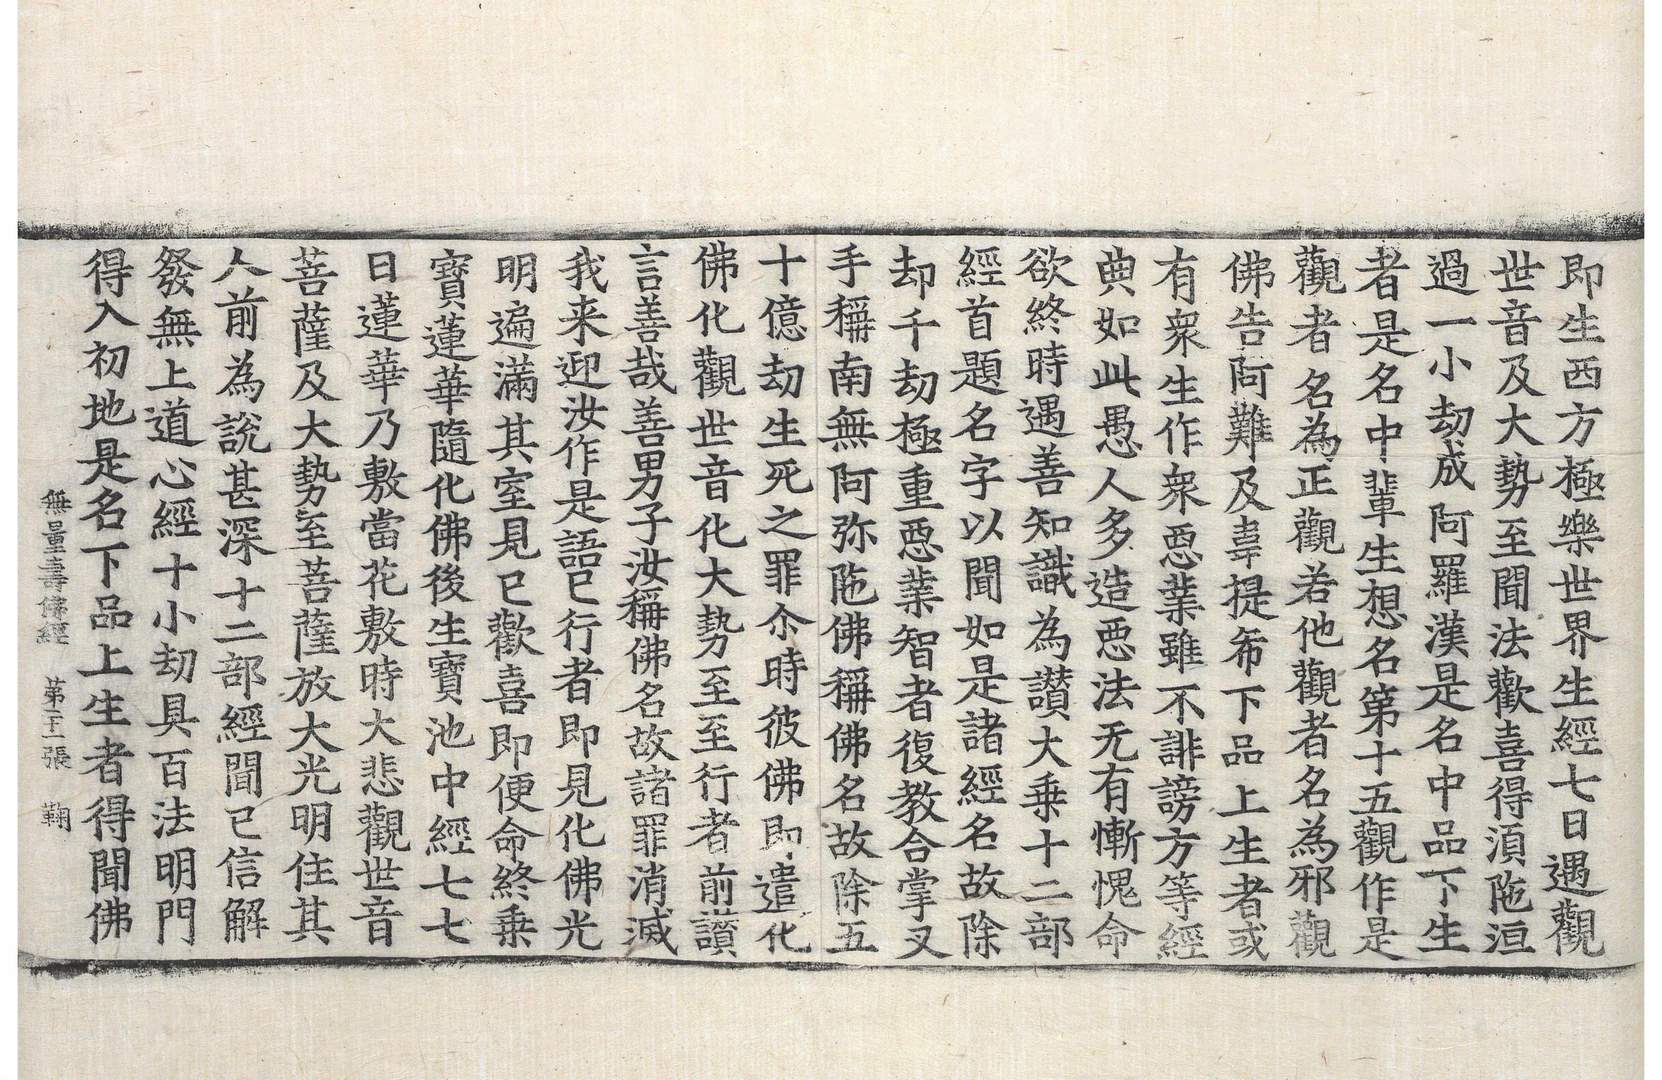 即生西方極樂世界生經七日遇觀
世音及大勢至聞法歡喜得湏陁洹
過一小劫成阿羅漢是名中品下生
者是名中輩生想名第十五觀作是
觀者名為正觀若他觀者名為邪觀
佛告阿難及韋提希下品上生者或
有衆生作衆惡業雖不誹謗方等經
典如此愚人多造惡法无有慚愧命
欲終時遇善知識為讃大乗十二部
經首題名字以聞如是諸經名故除
却千劫極重惡業智者復教合掌叉
手稱南無阿弥陁佛稱佛名故除五
十億劫生死之罪尒時彼佛即遣化
佛化觀世音化大勢至至行者前讃
言善哉善男子汝稱佛名故諸罪消滅
我来迎汝作是語已行者即見化佛光
明遍滿其室見已歡喜即便命終乗
寳蓮華隨化佛後生寳池中經七七
日蓮華乃敷當花敷時大悲觀世音
菩薩及大勢至菩薩放大光明住其
人前為說甚深十二部經聞已信解
發無上道心經十小劫具百法明門
得入初地是名下品上生者得聞佛
無量壽佛經 第二十二張 鞠